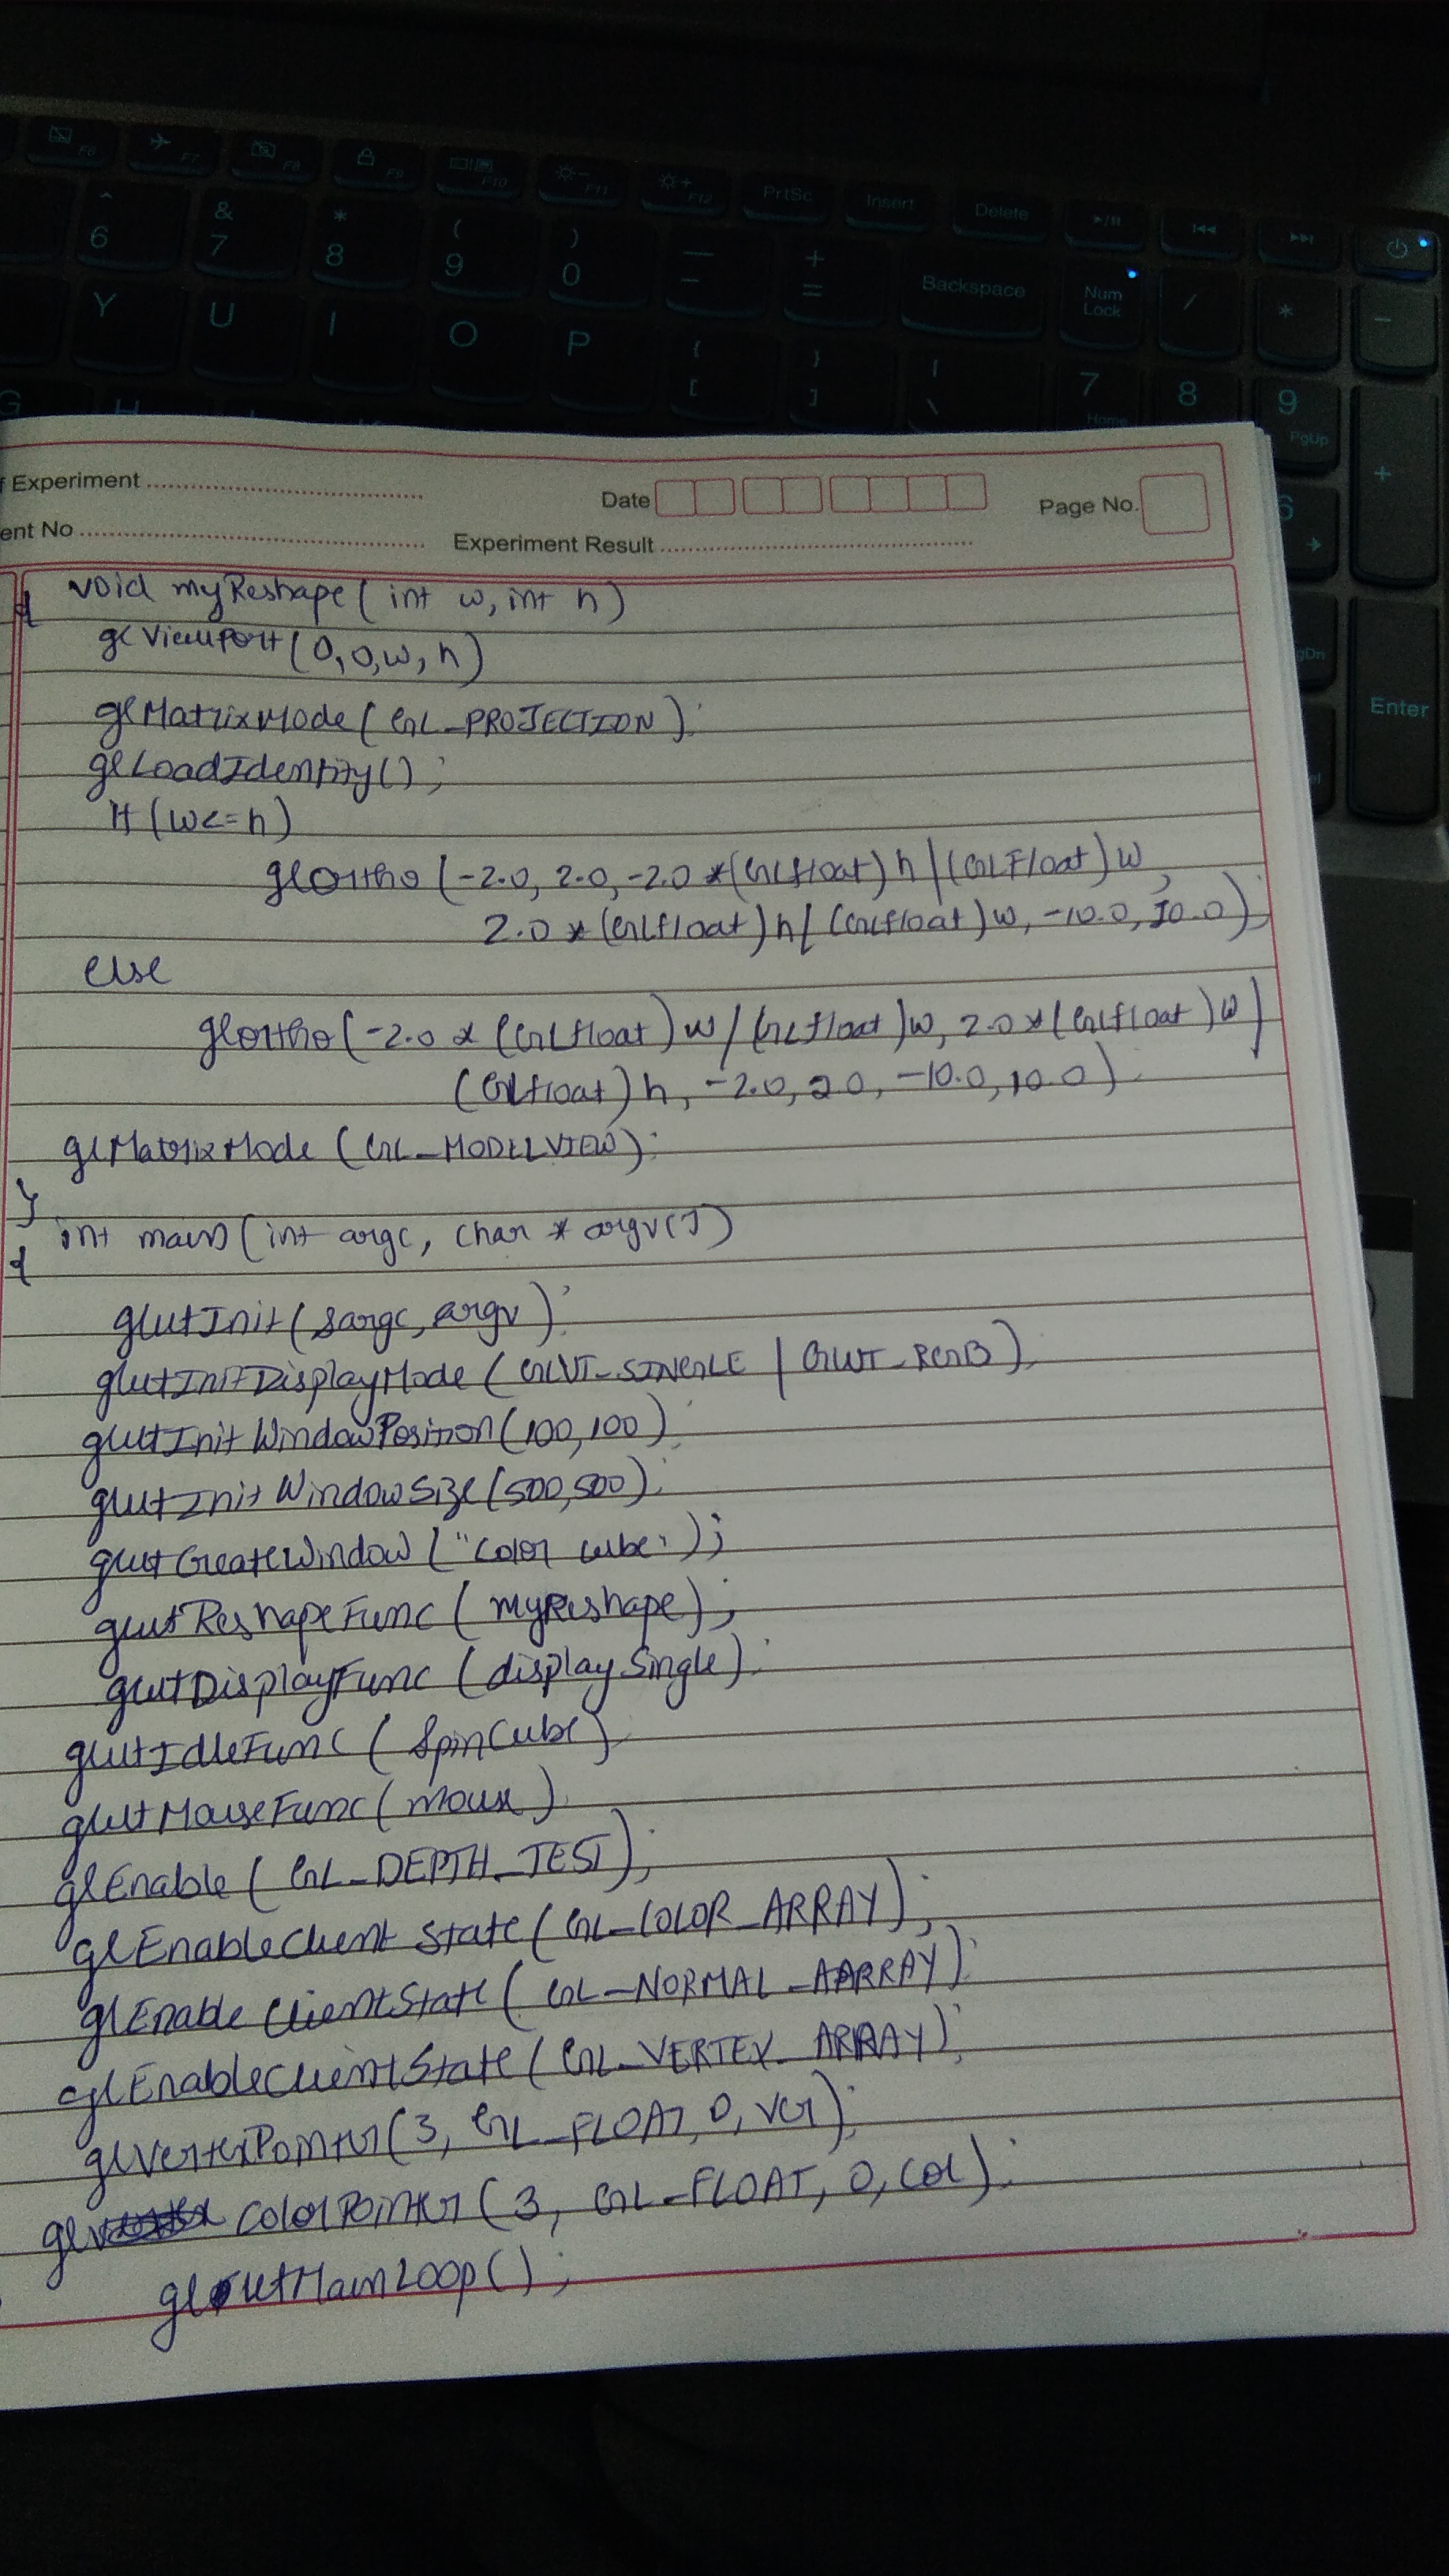 F6 F7 F8 F9 F10 F11 F12 PrtSc Insert Delete
^ & * ( ) — +
6 7 8 9 0 - = Backspace Num Lock / * -
Y U I O P { [ } ] | \ 7 Home 8 9 PgUp +
G H
6
gDn Enter
Experiment
Date
Page No.
ent No
Experiment Result
void myReshape (int w, int h)
{
glViewport (0, 0, w, h)
glMatrixMode (GL_PROJECTION);
glLoadIdentity();
if (w<=h)
glOrtho (-2.0, 2.0, -2.0 *(GLfloat) h / (GLFloat) w,
2.0 * (GLfloat) h / (GLfloat) w, -10.0, 10.0);
else
glOrtho (-2.0 * (GLfloat) w / (GLfloat) w, 2.0 * (GLfloat) w /
(GLfloat) h, -2.0, 2.0, -10.0, 10.0);
glMatrixMode (GL_MODELVIEW);
}
int main (int argc, char * argv[])
{
glutInit (&argc, argv);
glutInitDisplayMode (GLUT_SINGLE | GLUT_RGB);
glutInitWindowPosition (100, 100);
glutInit WindowSize (500, 500);
glutCreateWindow ("Color cube");
glutReshapeFunc (myReshape);
glutDisplayFunc (displaySingle);
glutIdleFunc (SpinCube)
glutMouseFunc (mouse);
glEnable (GL_DEPTH_TEST);
glEnableClient State (GL_COLOR_ARRAY);
glEnable ClientState (GL_NORMAL_AARRAY);
glEnableClientState (GL_VERTEX_ARRAY);
glVertexPointer (3, GL_FLOAT, 0, ver);
gl ColorPointer (3, GL_FLOAT, 0, col);
glutMainLoop();